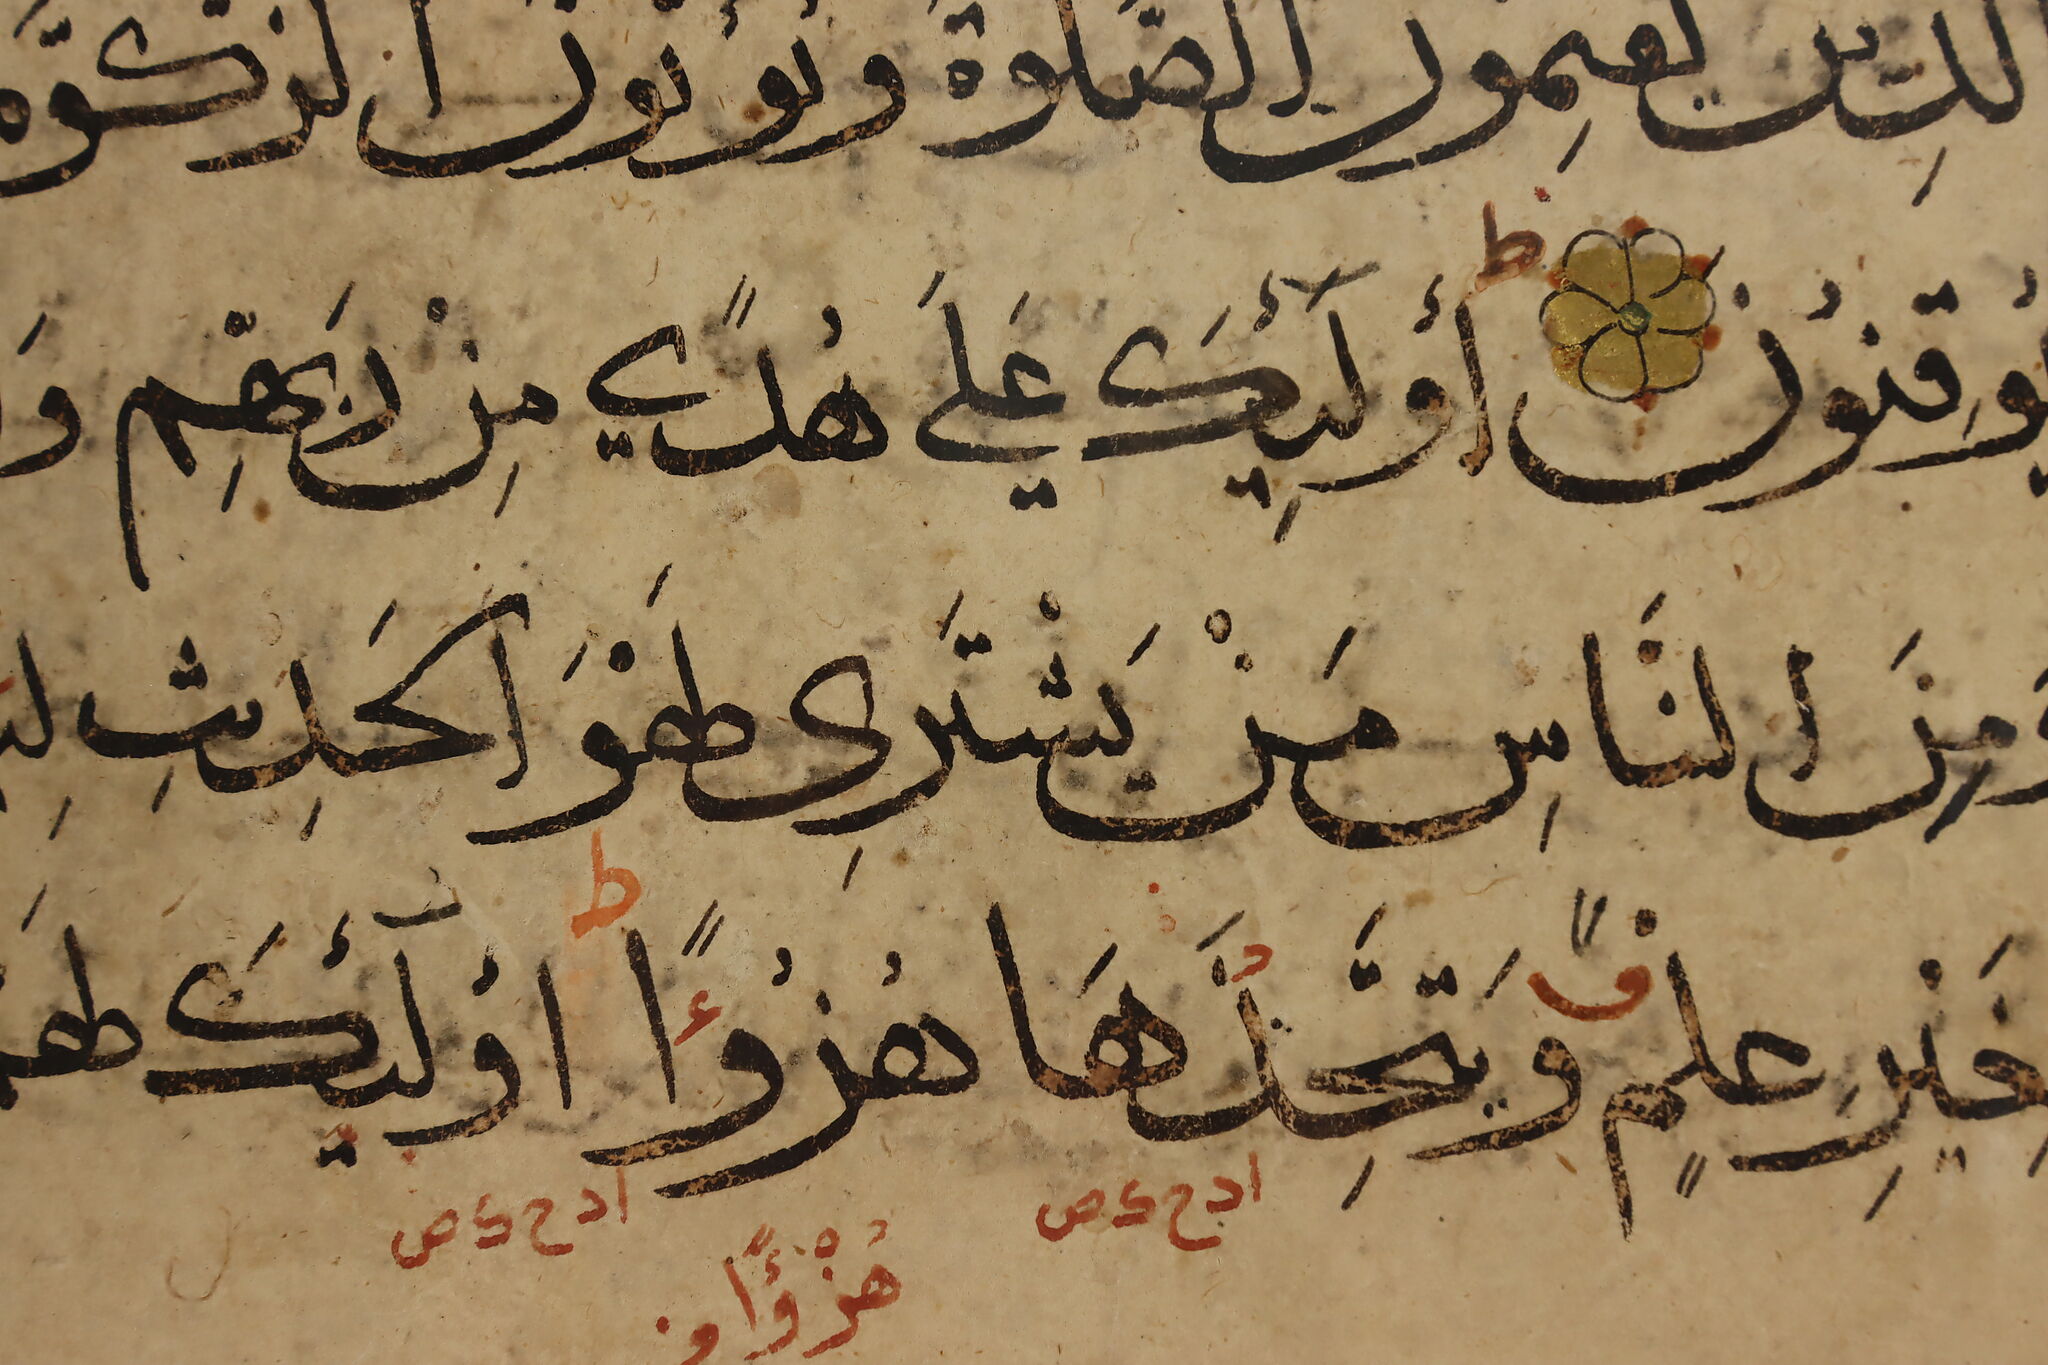 الَّذِينَ يُقِيمُونَ الصَّلَوٰةَ وَيُؤْتُونَ الزَّكَوٰةَ
يُوقِنُونَ ط أُولَٰٓئِكَ عَلَىٰ هُدًى مِنْ رَبِّهِمْ وَ
وَمِنَ النَّاسِ مَنْ يَشْتَرِى لَهْوَ الْحَدِيثِ
بِغَيْرِ عِلْمٍ وَيَتَّخِذَُهَا هُزُوًءا ط أُولَٰٓئِكَ لَهُمْ
ا د ح ك ص ا د ح ك ص
هُزْؤًا